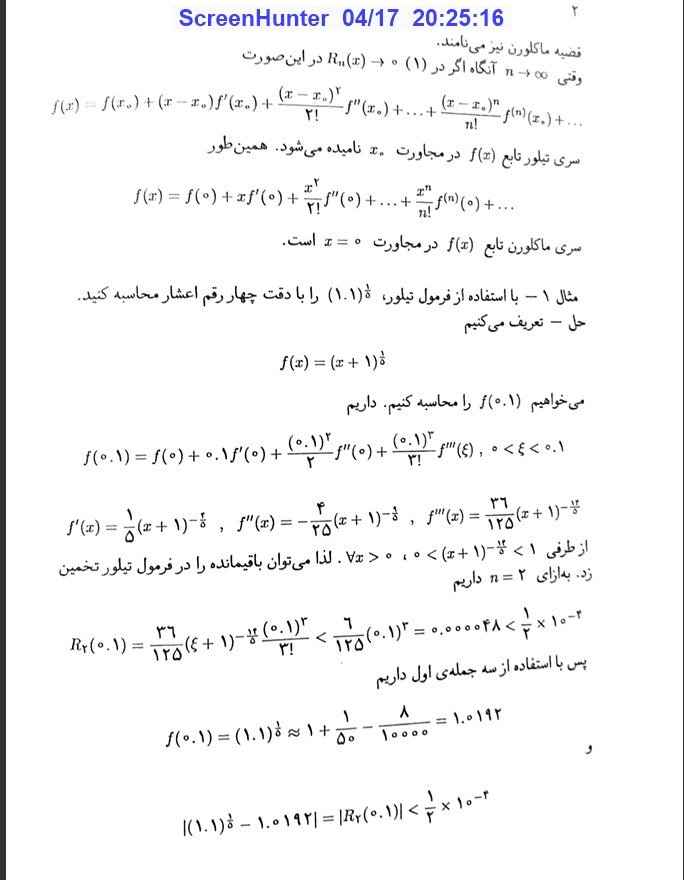 ScreenHunter 04/17 20:25:16
۲
قضیه ماکلورن نیز می‌نامند.
وقتی n → ∞ آنگاه اگر در (۱) Rₙ(x) → ۰ در این‌صورت
f(x) = f(x₀) + (x − x₀)f′(x₀) + (x − x₀)^۲/۲! f″(x₀) + ... + (x − x₀)^n/n! f^(n)(x₀) + ...
سری تیلور تابع f(x) در مجاورت x₀ نامیده می‌شود. همین‌طور
f(x) = f(۰) + xf′(۰) + x^۲/۲! f″(۰) + ... + x^n/n! f^(n)(۰) + ...
سری ماکلورن تابع f(x) در مجاورت x = ۰ است.
مثال ۱ − با استفاده از فرمول تیلور، (۱.۱)^(۱/۵) را با دقت چهار رقم اعشار محاسبه کنید.
حل − تعریف می‌کنیم
f(x) = (x + ۱)^(۱/۵)
می‌خواهیم f(۰.۱) را محاسبه کنیم. داریم
f(۰.۱) = f(۰) + ۰.۱f′(۰) + (۰.۱)^۲/۲ f″(۰) + (۰.۱)^۳/۳! f‴(ξ) , ۰ < ξ < ۰.۱
f′(x) = ۱/۵ (x + ۱)^(−۴/۵) , f″(x) = −۴/۲۵ (x + ۱)^(−۹/۵) , f‴(x) = ۳۶/۱۲۵ (x + ۱)^(−۱۴/۵)
از طرفی ۰ < (x + ۱)^(−۱۴/۵) < ۱ ، ∀x > ۰ . لذا می‌توان باقیمانده را در فرمول تیلور تخمین
زد. به‌ازای n = ۲ داریم
R₂(۰.۱) = ۳۶/۱۲۵ (ξ + ۱)^(−۱۴/۵) (۰.۱)^۳/۳! < ۶/۱۲۵ (۰.۱)^۳ = ۰.۰۰۰۰۴۸ < ۱/۲ × ۱۰^−۴
پس با استفاده از سه جمله‌ی اول داریم
f(۰.۱) = (۱.۱)^(۱/۵) ≈ ۱ + ۱/۵۰ − ۸/۱۰۰۰۰ = ۱.۰۱۹۲
و
|(۱.۱)^(۱/۵) − ۱.۰۱۹۲| = |R₂(۰.۱)| < ۱/۲ × ۱۰^−۴